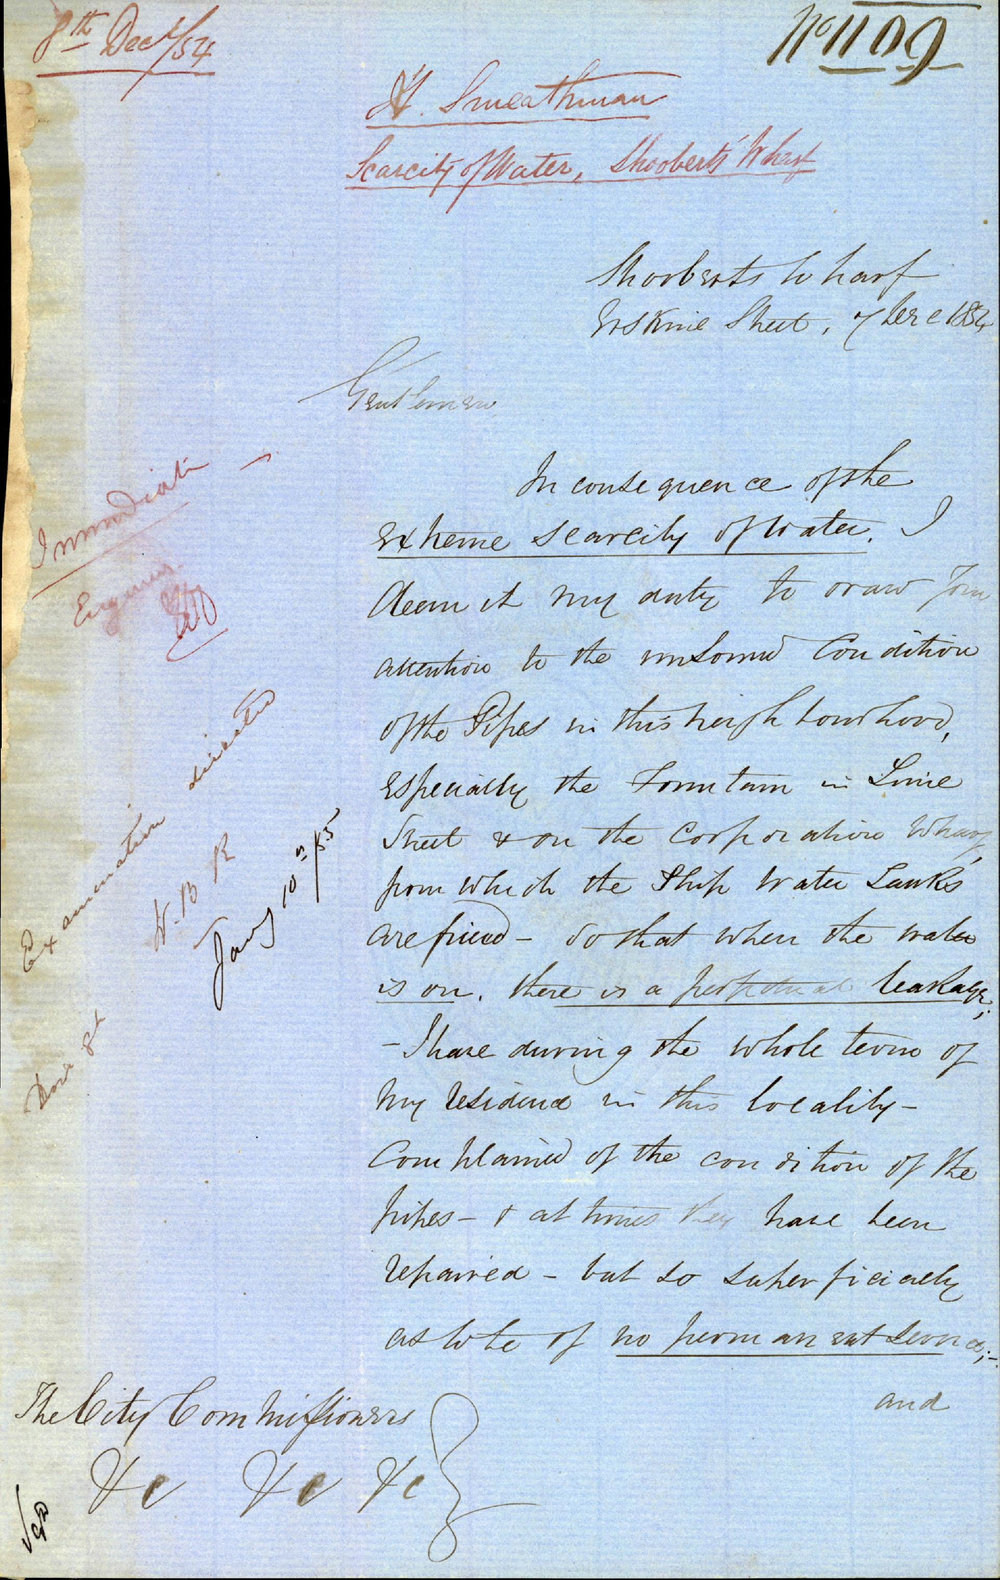 8th Decr/54
No 1109
H. Smeathman
Scarcity of Water, Shooberts' Wharf
Shooberts Wharf
Erskine Street, 7 Dec 1854
Gentlemen
In consequence of the
extreme scarcity of Water. I
deem it my duty to draw Your
attention to the unsound Condition
of the Pipes in this neighbourhood,
especially the Fountain in Lime
Street & on the Corporation Wharf,
from which the Ship Water Tanks
are filled - So that when the water
is on, there is a perpetual leakage;
- I have during the whole term of
my residence in this locality -
Complained of the condition of the
pipes - & at times they have been
repaired - but so superficially
as to be of no permanent service; -
and
The City Commissioners
&c &c &c
Immediate
Engineer
Examination directed
W. B R
Jany 10th/55
Dec 8th